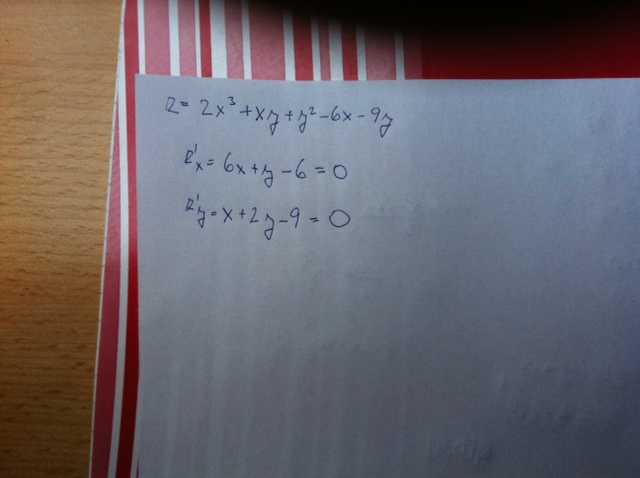 z = 2x³ + xy + y² - 6x - 9y
z'x = 6x + y - 6 = 0
z'y = x + 2y - 9 = 0